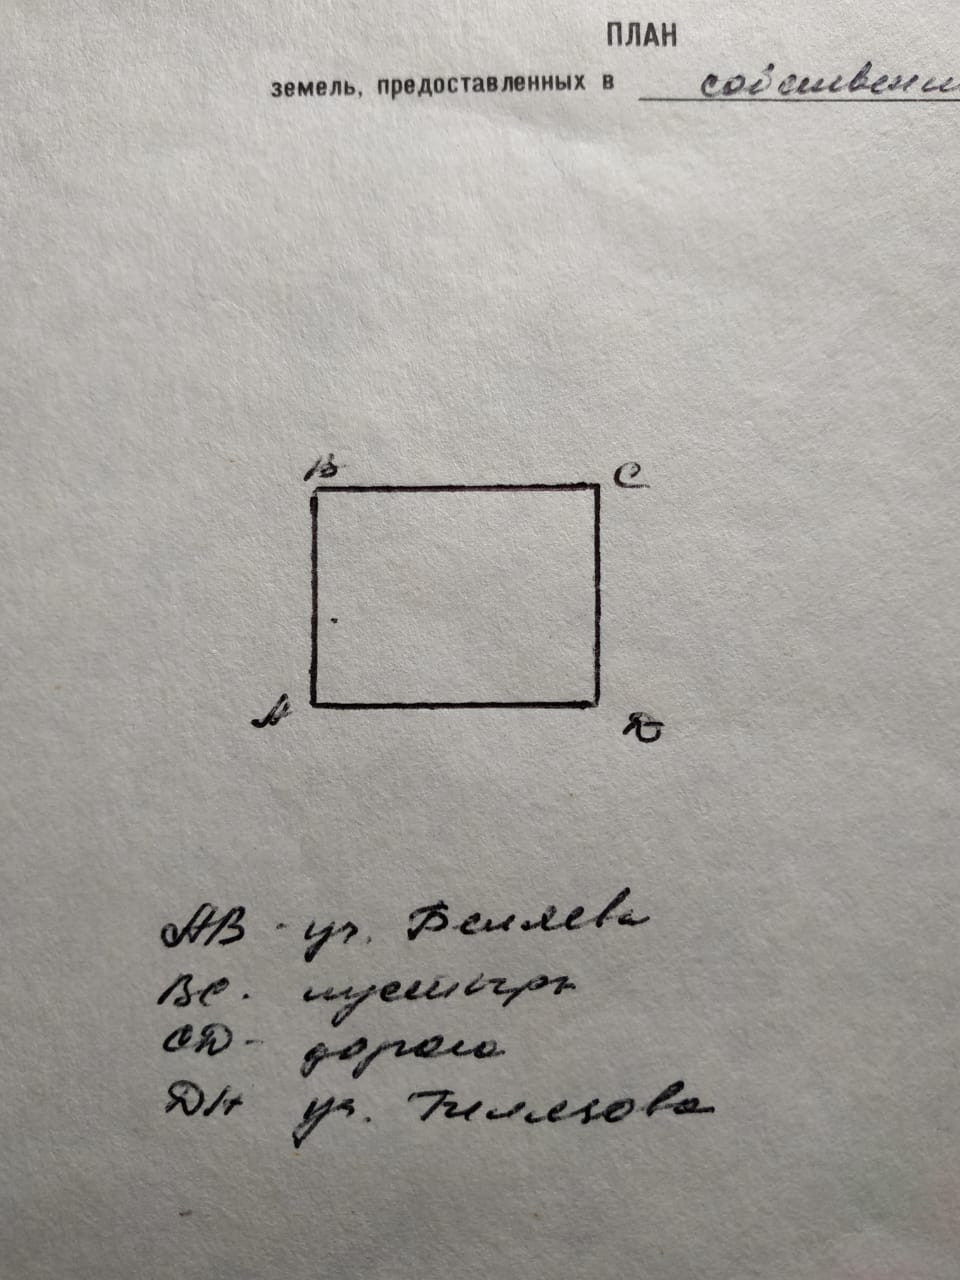 ПЛАН
земель, предоставленных в собственн
В С
А Д
АВ - уч. Беляева
ВС - пустырь
СД - дорога
ДА уч.